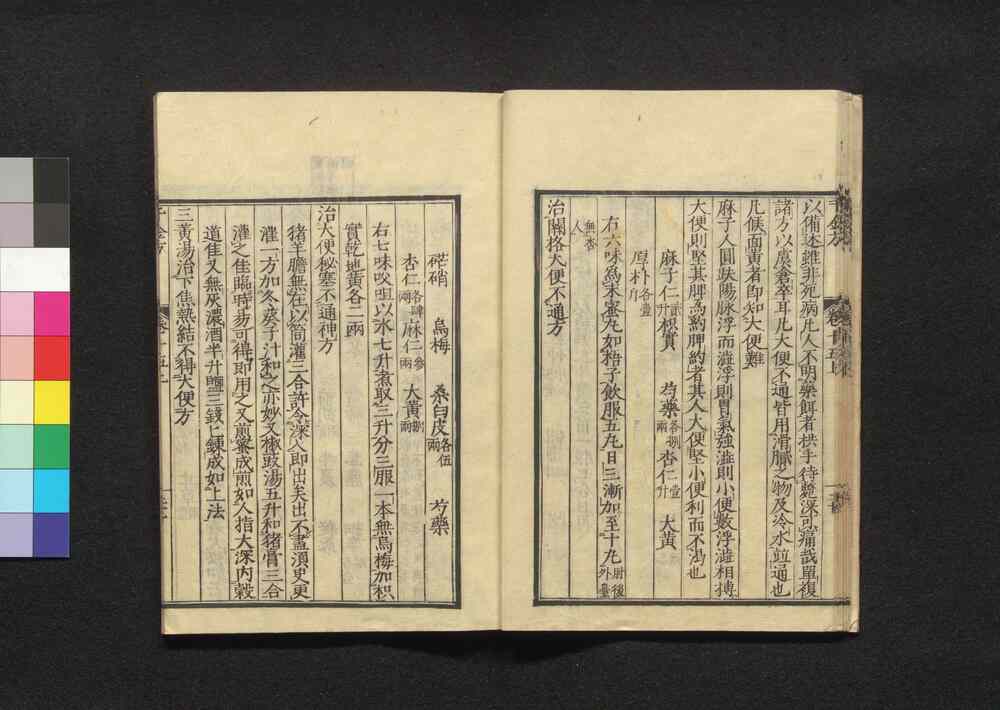 以備述雖非死病凡人不明藥餌者拱手待斃深可痛哉單複
諸方以虞倉卒耳凡大便不通皆用滑膩之物及冷水並通也
凡候面黃者即知大便難
麻子人圓趺陽脉浮而澁浮則胃氣強澁則小便數浮澁相搏
大便則堅其脾為約脾約者其人大便堅小便利而不渴也
麻子仁貳升 枳實 芍藥各捌兩 杏仁壹升 大黃
厚朴各壹
右六味為末蜜丸如梧子飲服五丸日三漸加至十丸肘後外臺
無杏人
治關格大便不通方
芒硝 烏梅 桑白皮各伍兩 芍藥
杏仁各肆兩 麻仁參兩 大黃捌兩
右七味㕮咀以水七升煮取三升分三服一本無烏梅加枳
實乾地黃各二兩
治大便秘塞不通神方
猪羊膽無在以筒灌三合許令深入即出矣出不盡須臾更
灌一方加冬葵子汁和之亦妙又椒豉湯五升和猪膏三合
灌之佳臨時易可得即用之又煎蜜成煎如人指大深內穀
道佳又無灰濃酒半升鹽三錢匕鍊成如上法
三黃湯治下焦熱結不得大便方
千金方